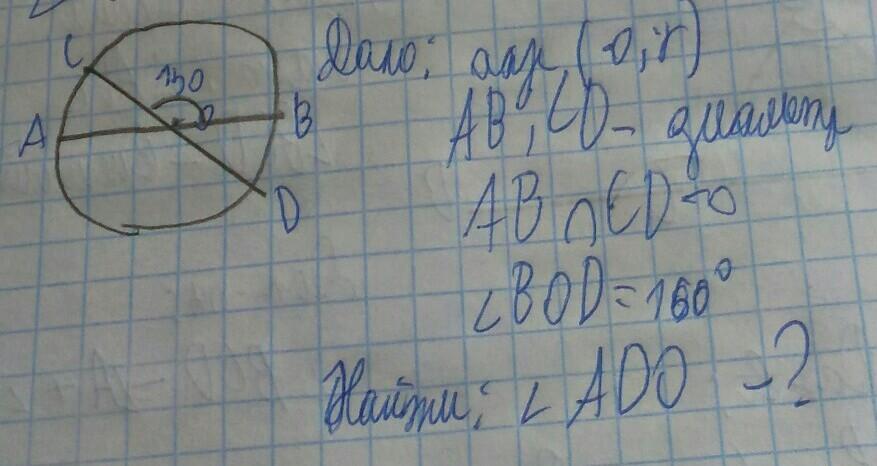 C
150
O
A
B
D
Дано: окр. (O, r)
AB, CD - диаметр
AB ∩ CD = O
∠BOD = 160°
Найти: ∠ADO - ?